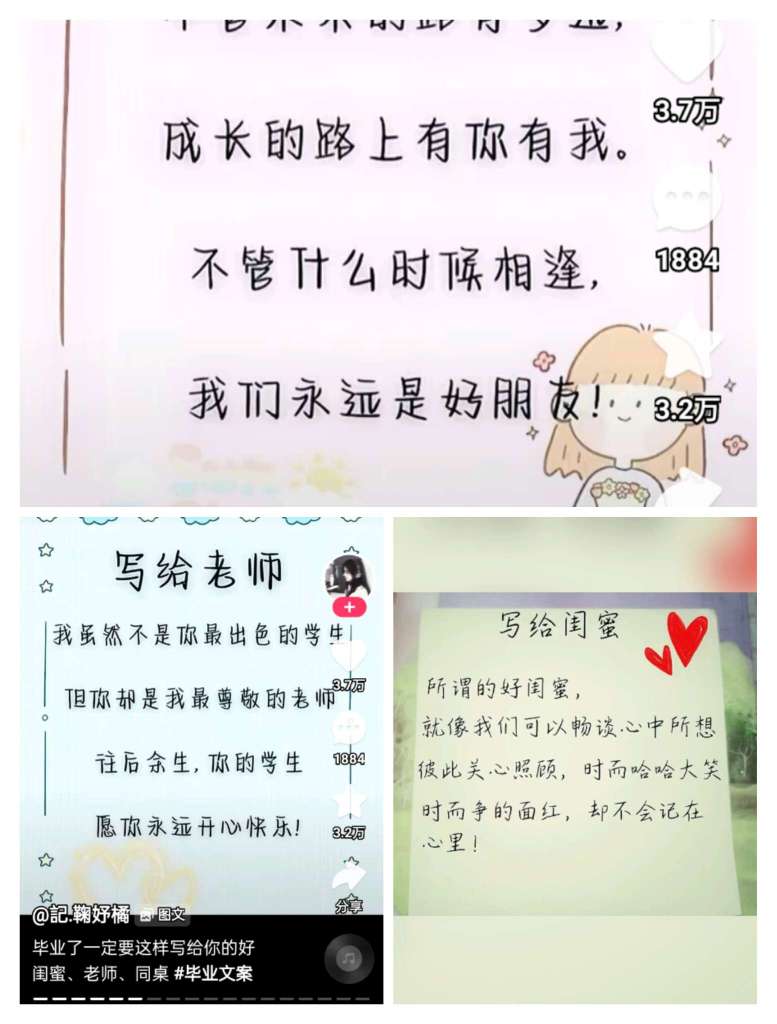 成长的路上有你有我。
3.7万
不管什么时候相逢,
1884
我们永远是好朋友!
3.2万
写给老师
我虽然不是你最出色的学生
但你却是我最尊敬的老师
3.7万
往后余生,你的学生
1884
愿你永远开心快乐!
3.2万
分享
@記.鞠妤橘 图文
毕业了一定要这样写给你的好
闺蜜、老师、同桌 #毕业文案
写给闺蜜
所谓的好闺蜜,
就像我们可以畅谈心中所想
彼此关心照顾,时而哈哈大笑
时而争的面红,却不会记在
心里!